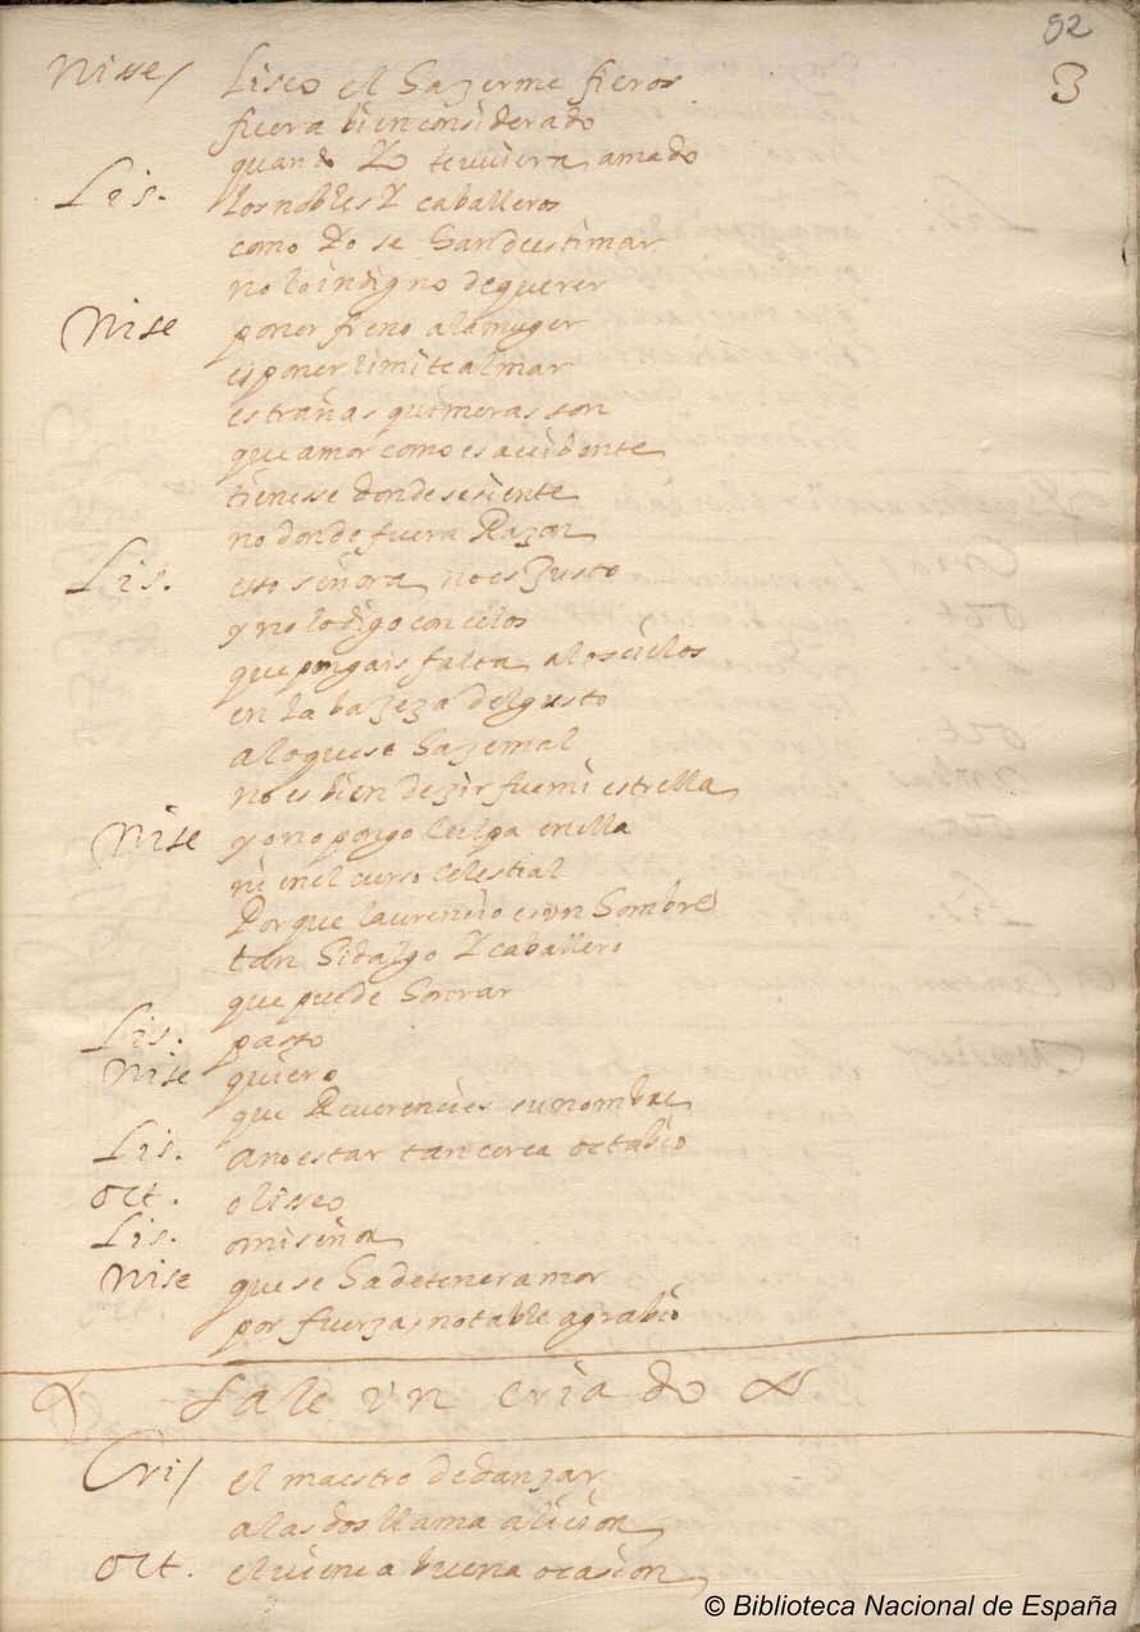 82
3
Nisse/ Liseo el hazerme fieros
fuera bien considerado
quando Yo te uuiera amado
Lis. los nobles Y caballeros
como Yo se han de estimar
no lo indigno de querer
Nise poner freno a la muger
es poner limite al mar
estrañas quimeras son
que amor como es acidente
tienesse donde se siente
no donde fuera Razon
Lis. esto señora no es Justo
y no lo digo con celos
que pongais falta a los cielos
en la bajeza del gusto
a lo que se haze mal
no es bien dezir fue mi estrella
Nise yo no pongo culpa en ella
ni en el curso celestial
Porque laurencio es un hombre
tan hidalgo Y caballero
que puede honrrar
Lis. pasto
Nise quiero
que Reuerencies su nombre
Lis. a no estar tan cerca octabio
Oct. o lisseo
Lis. o mi señor
Nise que se ha de tener amor
por fuerza, notable agrabio
Sale un criado
Cri/ el maestro de danzar
a las dos llama a licion
Oct. el uiene a buena ocasion
© Biblioteca Nacional de España